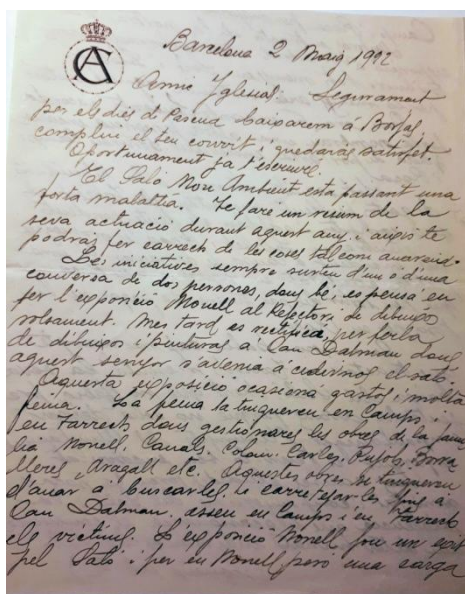 CA
Barcelona 2 Maig 1922
Amic Yglesias: Segurament
per els dies de Pascua baixarem á Borjas,
compliré el teu convit i quedarás satisfet.
Oportunament ja t'escriuré.
El Saló Nou Ambient está passant una
forta malaltia. Te faré un resum de la
seva actuació durant aquest any i aixis te
podrás fer carrech de les coses tal com
Les iniciatives sempre surten d'un ó d'una
conversa de dos persones, dons bé, es pensa en
fer l'exposició Nonell al de dibuixos
solsament. Mes tard es rectifica, per ferla
de dibuixos i pinturas á Can Dalmau dons
aquest senyor s'avenia á cedirnos el saló.
Aquesta exposició ocasiona gastos i molta
feina. La feina la tingueren en Camps i
en Farrech dons gestionares les obres de la fami
lia Nonell, Canals, Colom, Carles, Pujols, Borra
lleres, Aragall etc. Aquestes obres se tingueren
d'anar a buscarles i carretejarles fins a
Can Dalmau. en Camps i en Farrech
els víctims. L'exposició Nonell fou un exit
pel Saló i per en Nonell pero una carga